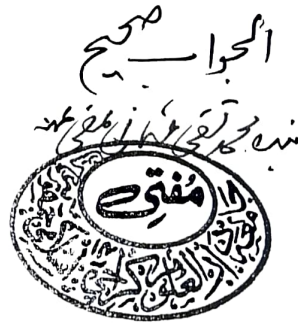 الجواب صحیح
بندہ محمد تقی عثمانی عفی عنہ
مفتی
دار العلوم کراچی